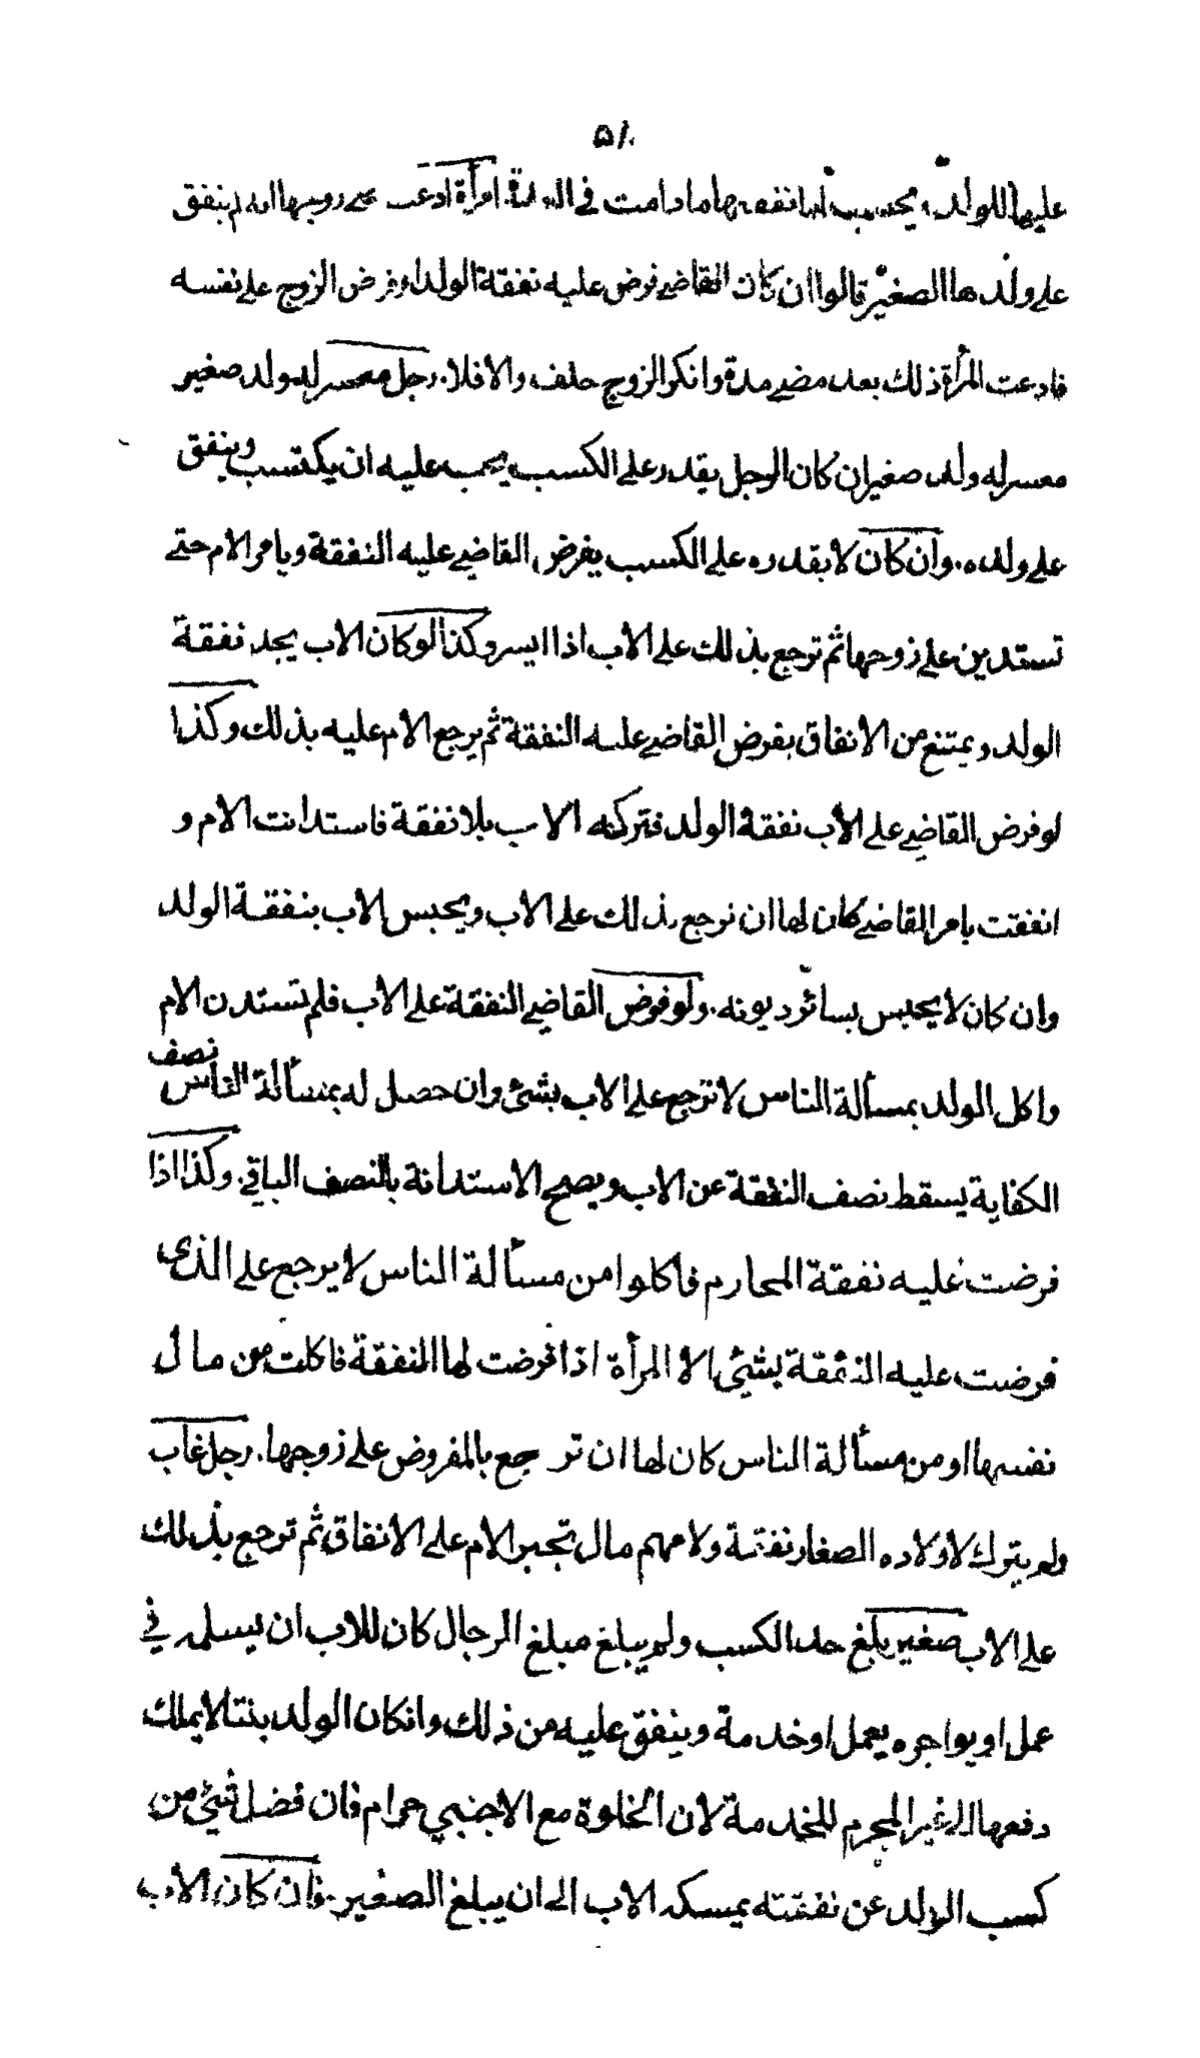 عليها للولد ويحتسب لها نفقتها مادامت في العدة. امرأة ادعت على زوجها انه لم ينفق
على ولدها الصغير قالوا ان كان القاضي فرض عليه نفقة الولد او فرض الزوج على نفسه
فادعت المرأة ذلك بعد مضي مدة وانكر الزوج حلف والا فلا. رجل معسر له ولد صغير
معسر له ولد صغير ان كان الرجل يقدر على الكسب يجب عليه ان يكتسب وينفق
على ولده. وان كان لا يقدره على الكسب يفرض القاضي عليه النفقة ويامر الام حتى
تستدين على زوجها ثم ترجع بذلك على الأب اذا ايسر وكذا لو كان الاب يجد نفقة
الولد ويمتنع من الانفاق يفرض القاضي عليه النفقة ثم يرجع الام عليه بذلك وكذا
لو فرض القاضي على الأب نفقة الولد فتركه الاب بلا نفقة فاستدانت الام و
انفقت بامر القاضي كان لها ان ترجع بذلك على الاب ويحبس الأب بنفقة الولد
وان كان لا يحبس بسائر ديونه. ولو فوض القاضي النفقة على الاب فلم تستدن الام
واكل الولد بمسألة الناس لا ترجع على الاب بشئ وان حصل له بمسألة الناس نصف
الكفاية يسقط نصف النفقة عن الاب ويصح الاستدانة بالنصف الباقي. وكذا اذا
فرضت عليه نفقة المحارم فاكلوا من مسألة الناس لا يرجع على الذى
فرضت عليه النفقة بشئ الا المرأة اذا فرضت لها النفقة فاكلت من مال
نفسها او من مسألة الناس كان لها ان ترجع بالمفروض على زوجها. رجل غاب
ولم يترك لاولاده الصغار نفقة ولامهم مال تجبر الام على الانفاق ثم ترجع بذلك
على الاب صغير بلغ حد الكسب ولم يبلغ مبلغ الرجال كان للاب ان يسلمه في
عمل او يواجره يعمل او خدمة وينفق عليه من ذلك وانكان الولد بنتا لا يملك
دفعها الى غير المحرم للخدمة لان الخلوة مع الاجنبي حرام فان فضل شئ من
كسب الولد عن نفقته يمسكه الاب الى ان يبلغ الصغير. فان كان الأب